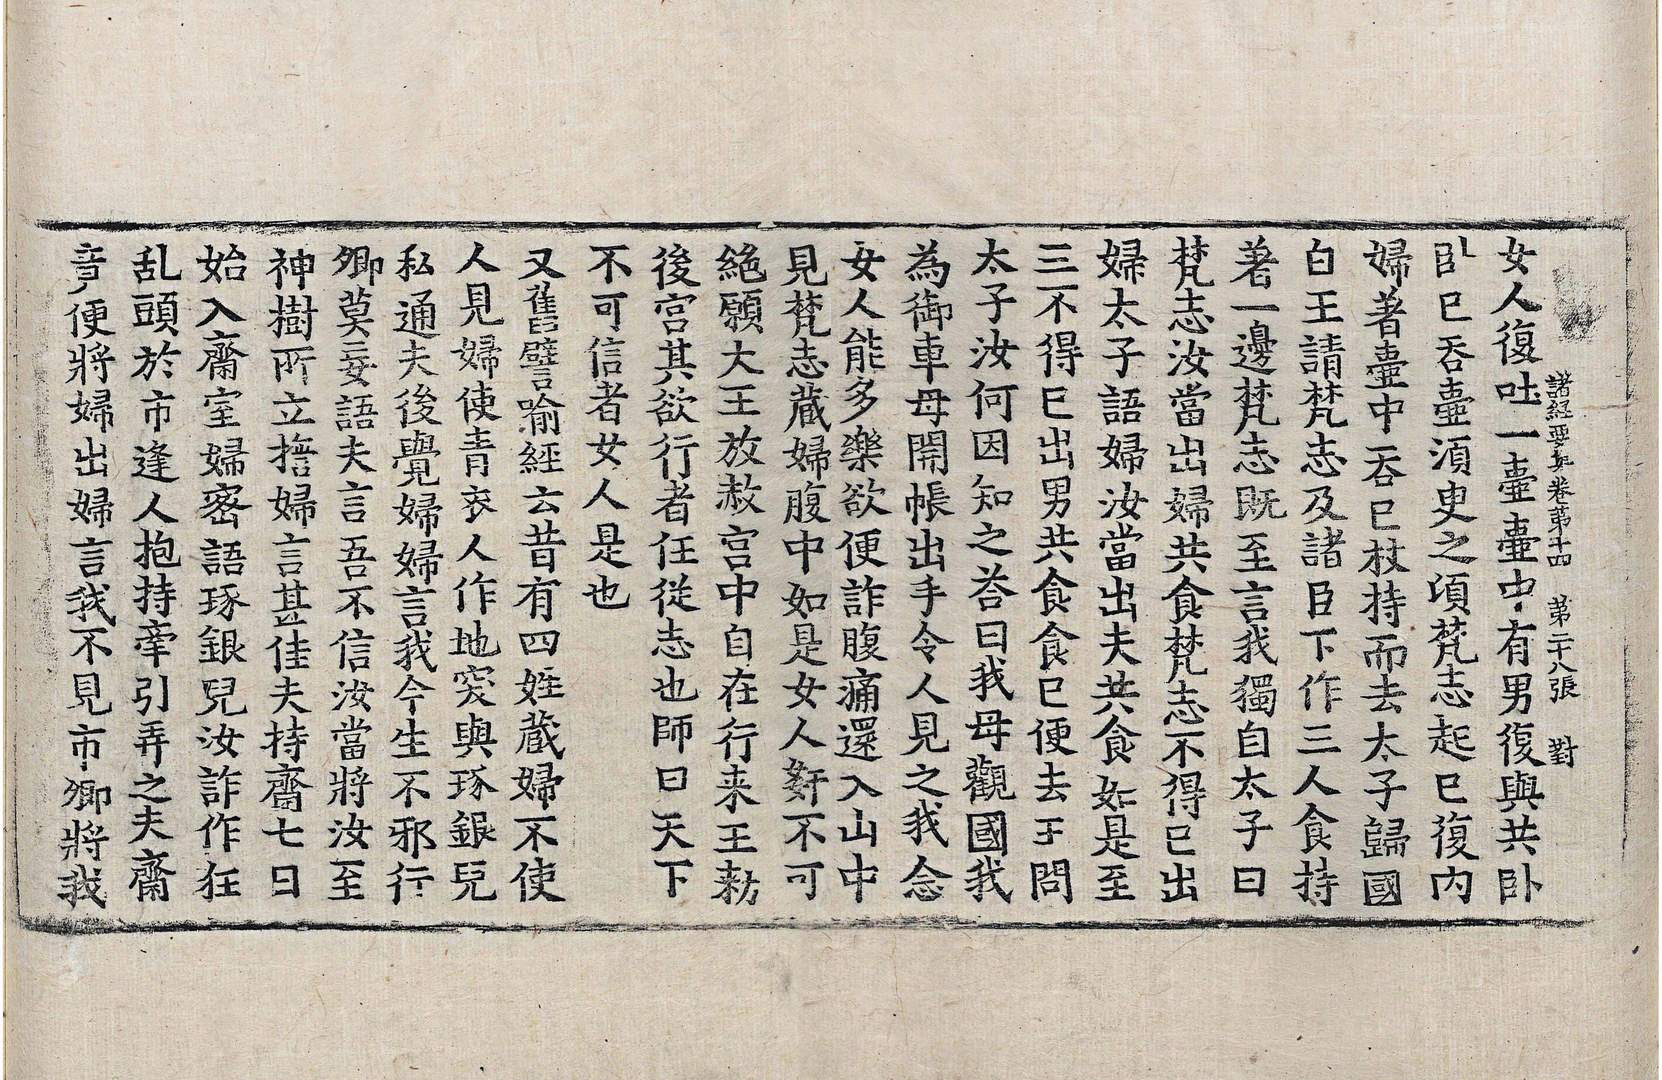 諸經要集卷第十四 第二十八張 對
女人復吐一壷壷中有男復與共卧
卧已吞壷湏臾之頃梵志起已復内
婦著壷中吞已杖持而去太子歸國
白王請梵志及諸臣下作三人食持
著一邊梵志既至言我獨自太子曰
梵志汝當出婦共食梵志不得已出
婦太子語婦汝當出夫共食如是至
三不得已出男共食食已便去王問
太子汝何因知之荅曰我母觀國我
為御車母開帳出手令人見之我念
女人能多樂欲便詐腹痛還入山中
見梵志蔵婦腹中如是女人姧不可
絶願大王放赦宫中自在行来王勑
後宫其欲行者任從志也師曰天下
不可信者女人是也
又舊譬喻經云昔有四姓蔵婦不使
人見婦使青衣人作地突與琢銀兒
私通夫後覺婦婦言我今生不邪行
卿莫妄語夫言吾不信汝當將汝至
神樹所立擔婦言甚佳夫持齋七日
始入齋室婦宻語琢銀兒汝詐作狂
乱頭於市逢人抱持牽引弄之夫齋
竟便將婦出婦言我不見市卿將我